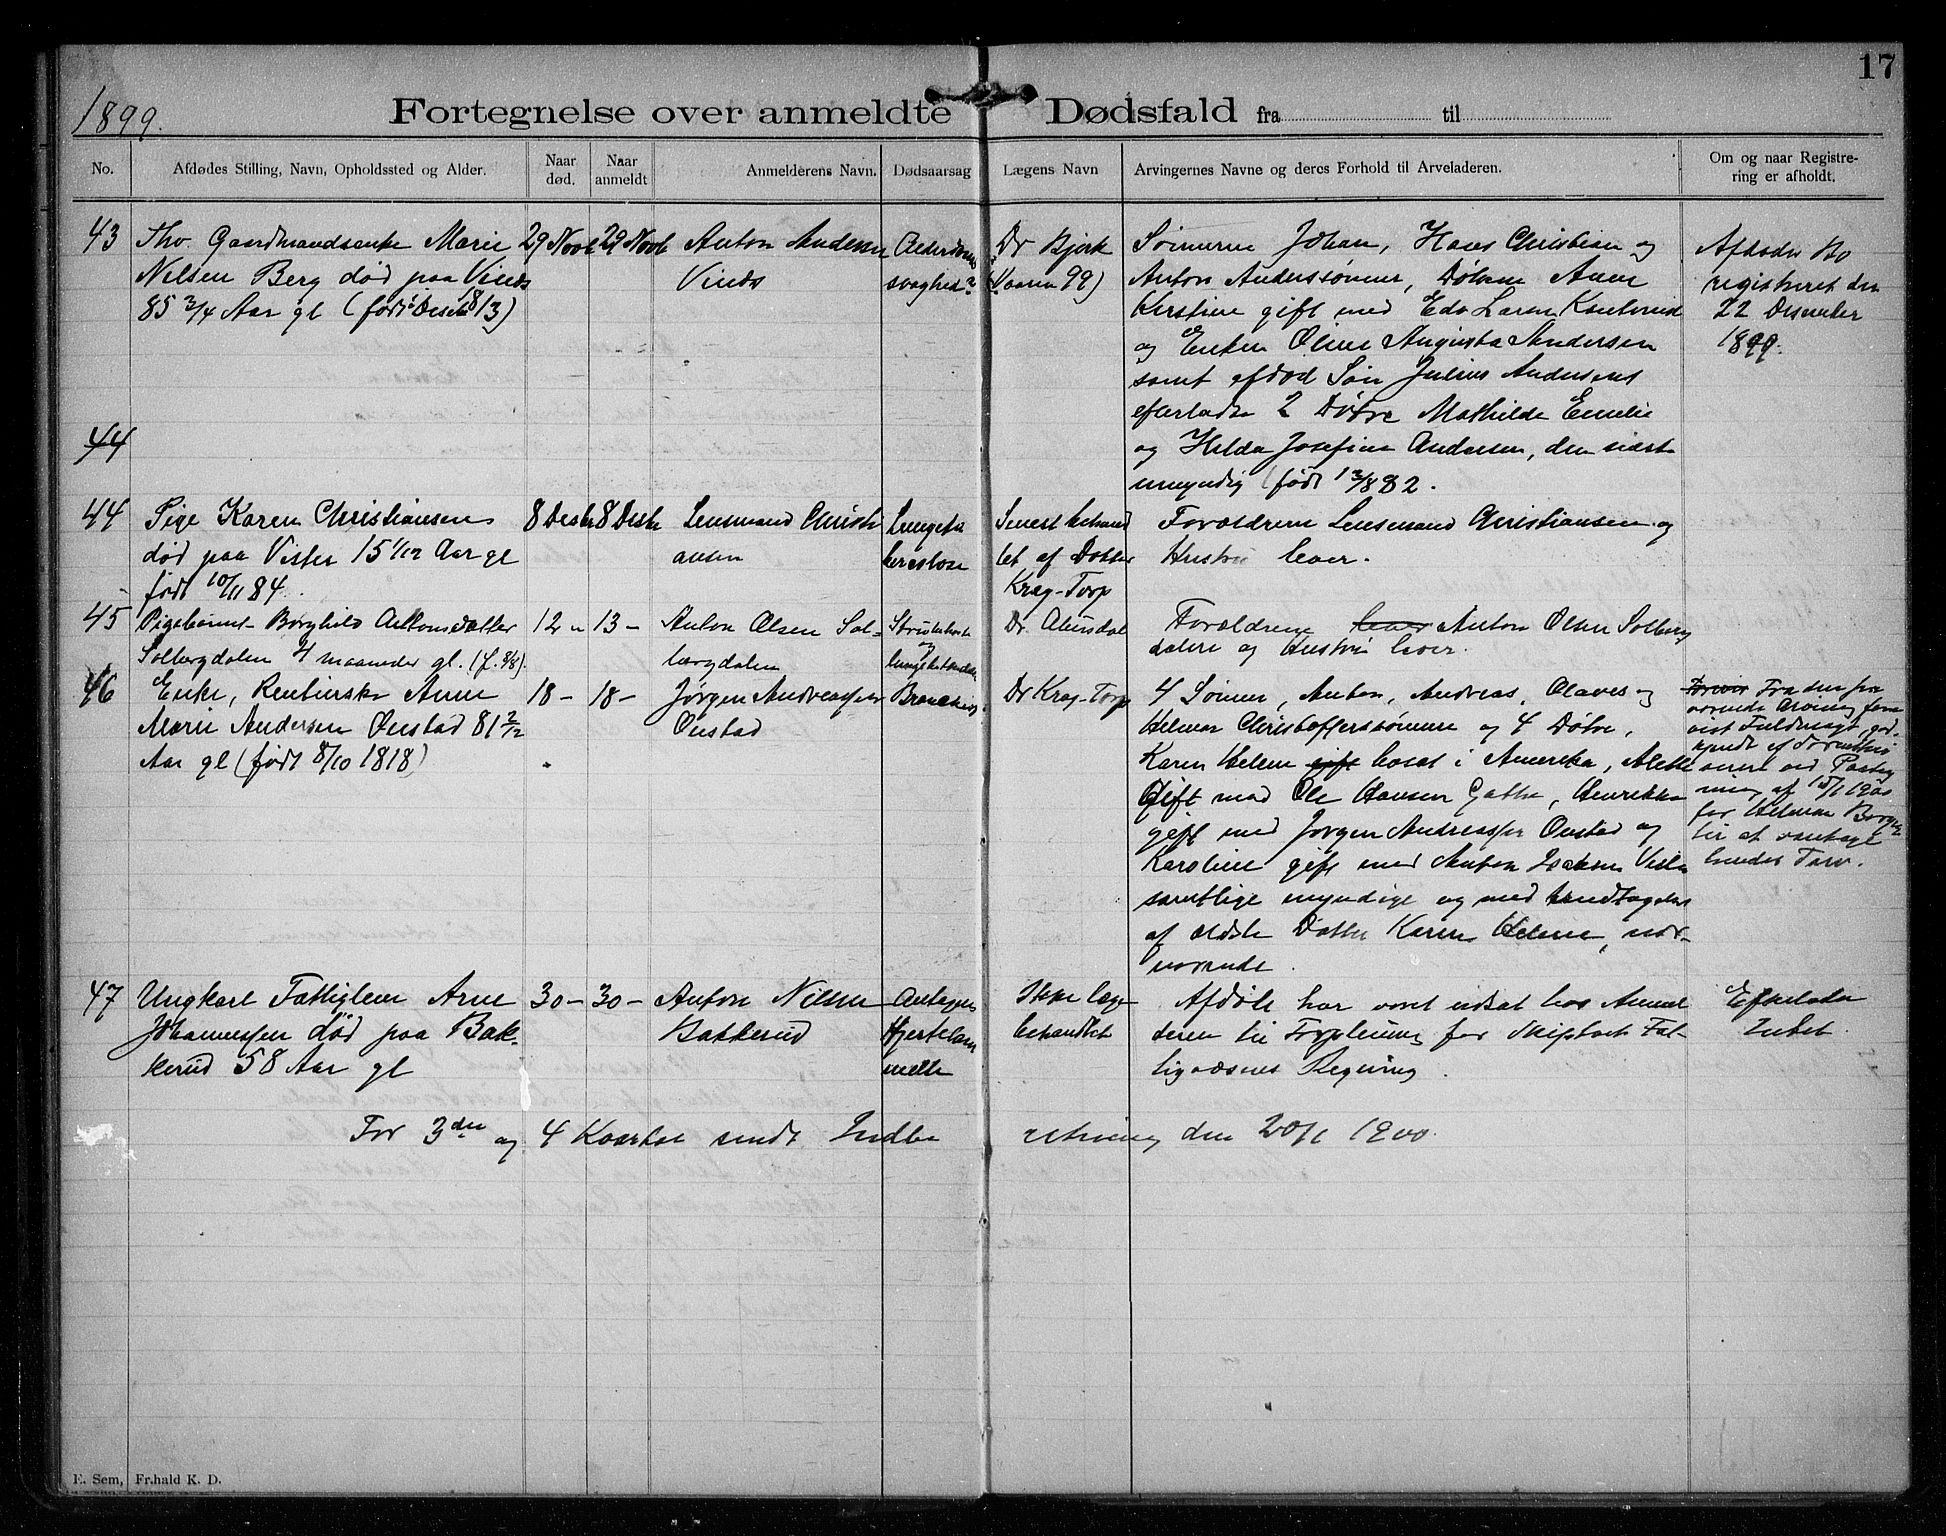 17
1899.
Fortegnelse over anmeldte Dødsfald fra til
No.
Afdødes Stilling, Navn, Opholdssted og Alder.
Naar død.
Naar anmeldt
Anmelderens Navn.
Dødsaarsag
Lægens Navn
Arvingernes Navne og deres Forhold til Arveladeren.
Om og naar Registre-
ring er afholdt.
43
Gaardmandsenke Marie
Nielsen Berg død paa Vinds
85 3/4 Aar gl (født Desember 1813)
29 Novb
29 Novb
Anton Andersen
Vinds
Alderdoms
svaghed?
Dr Bjerk
(Vaaren 99)
Sønnerne Johan, Hans Christian og
Anton Anderssønner, Døtrene Anne
Kirstine gift med Edv Larsen
og Enken Oline Augusta Andersen
samt afdød Søn Julius Andersens
efterladte 2 Døtre Mathilde Emelie
og Hilda Josefine Andersen, den sidste
umyndig (født 1882.
Afdødes Bo
registreret den
22 Desember
1899.
44
44
Pige Karen Christiansen
død paa Vister 15 1/12 Aar gl
født 10/11 84.
8 Desbr
8 Desbr
Lensmand Christi
ansen
Lungetu
berculose
Senest behand
let af Doktor
Krag-Torp
Forældrene Lensmand Christiansen og
Hustru lever.
45
Pigebarnet Borghild Antonsdatter
Solbergdalen 4 maaneder gl. (f. 8/8).
12 "
13 —
Anton Olsen Sol-
bergdalen
og
Dr.
Forældrene lever Anton Olsen Solberg
dalen og Hustru lever.
46
Enke, Rentierske Anne
Marie Andersen Ønstad 81 2/12
Aar gl (født 8/10 1818)
18 —
18 —
Jørgen Andreassen
Ønstad
Dr Krag-Torp
4 Sønner, Anton, Andreas, Olaves og
Helmer Christofferssønner og 4 Døtre,
Karen Helene gift bosat i Amerika,
Gift med Ole Hansen, Henrikke
gift med Jørgen Andreassen Ønstad og
Karoline gift med Anton Isaksen
samtlige myndige og med Undtagelse
af ældste Datter Karen Helene, nær-
værende.
Fra den fra
værende Arving frem
vist Fuldmagt, god-
kjendt af
ved Paateg
ning af 15/1 1900
for Helmer
til at varetage
hendes Tarv.
47
Ungkarl Fattiglem Arne
Johannessen død paa Bak-
kerud 58 Aar gl
30 —
30 —
Anton Nilsen
Bakkerud
Antagen
Hjertelam
melse
Ikke læge
behandlet
Afdøde har været udsat hos Anmel
deren til Forpleining for Skiptvet Fat-
tigvæsens Regning.
Efterlader
Intet.
For 3die og 4 Kvartal sendt Indbe
retning den 20/1 1900.
E. Sem, Fr.hald K. D.